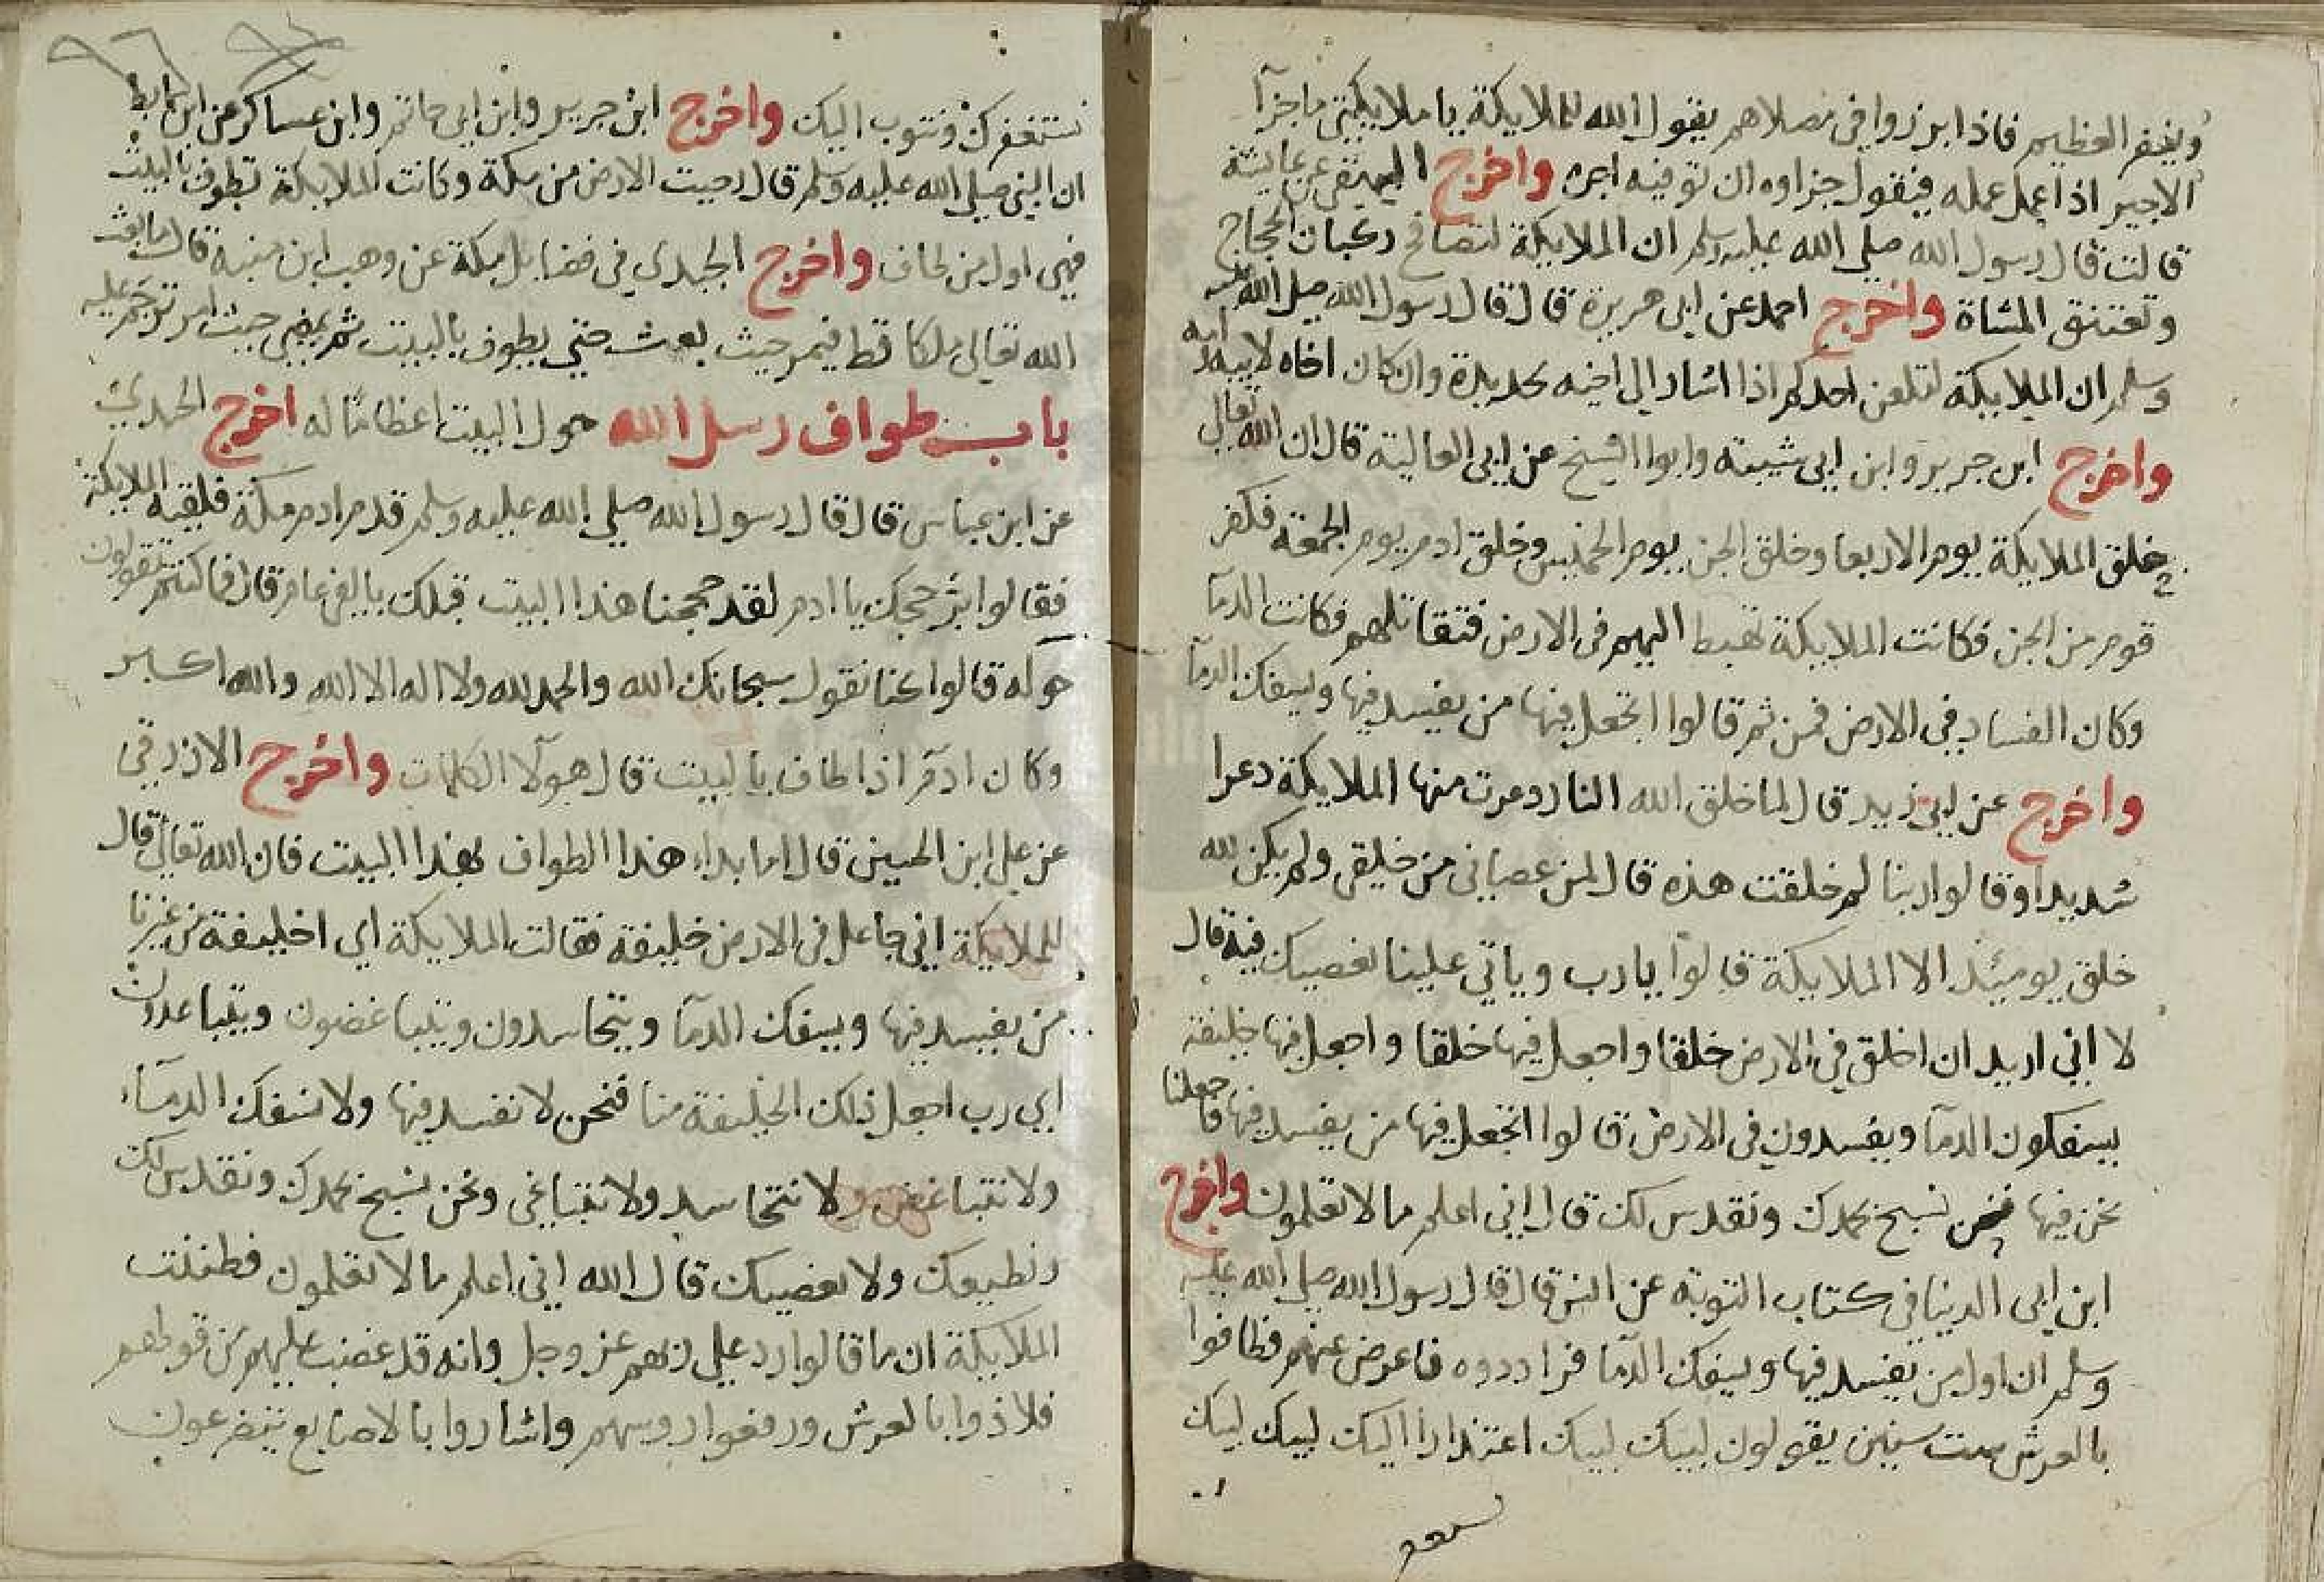 ويغفر العظيم فاذا برزوا في مصلاهم يقول الله للملايكة يا ملايكتي ما جزآ
الاجير اذا عمل عمله فيقول جزاوه ان توفيه اجره واخرج البيهقي عن عايشة
قالت قال رسول الله صلي الله عليه وسلم ان الملايكة لتصافح ركبان الحجاج
وتعتنق المشاة واخرج احمد عن ابي هريرة قال قال رسول الله صلي الله عليه
وسلم ان الملايكة لتلعن احدكم اذا اشار الي اخيه بحديدة وان كان اخاه لابيه وامه
واخرج ابن جرير وابن ابي شيبة وابوا الشيخ عن ابي العالية قال ان الله تعالي
خلق الملايكة يوم الاربعا وخلق الجن يوم الخميس وخلق ادم يوم الجمعة فكفر
قوم من الجن فكانت الملايكة تهبط اليهم في الارض فتقاتلهم فكانت الدمآ
وكان الفساد في الارض فمن ثم قالوا اتجعل فيها من يفسد فيها ويسفك الدمآ
واخرج عن ابن زيد قال لما خلق الله النار ذعرت منها الملايكة ذعرا
شديدا وقالوا ربنا لم خلقت هذه قال لمن عصاني من خلقي ولم يكن لله
خلق يوميئذ الا الملايكة قالوا يا رب وياتي علينا نعصيك فيه قال
لا اني اريد ان اخلق في الارض خلقا واجعل فيها خلقا واجعل فيها خليفة
يسفكون الدمآ ويفسدون في الارض قالوا اتجعل فيها من يفسد فيها فاجعلنا
نحن فيها فنحن نسبح بحمدك ونقدس لك قال اني اعلم ما لا تعلمون واخرج
ابن ابي الدنيا في كتاب التوبة عن انس قال قال رسول الله صلي الله عليه
وسلم ان اول من يفسد فيها ويسفك الدمآ فزادروه فاعرض عنهم فطافوا
بالعرش ست سنين يقولون لبيك لبيك اعتذارا اليك لبيك لبيك
نستغفرك ونتوب اليك واخرج ابن جرير وابن ابي حاتم وابن عساكر عن ابن سابط
ان النبي صلي الله عليه وسلم قال دحيت الارض من مكة وكانت الملايكة تطوف بالبيت
فهي اول من طاف واخرج الجندي في فضايل مكة عن وهب ابن منبه قال ما بعث
الله تعالي ملكا قط فيمر حيث بعث حتي يطوف بالبيت ثم يمضي حيث امر
باب طواف رسل الله حول البيت اعظاما له اخرج الجندي
عن ابن عباس قال قال رسول الله صلي الله عليه وسلم قدم ادم مكة فلقيه الملايكة
فقالوا بر حجك يا ادم لقد حججنا هذا البيت قبلك بالفي عام قال فما كنتم تقولون
حوله قالوا كنا نقول سبحانك الله والحمد لله ولا اله الا الله والله اكبر
وكان ادم اذا طاف بالبيت قال هولآ الكلمات واخرج الازرقي
عن علي ابن الحسين قال اما بداء هذا الطواف بهذا البيت فان الله تعالي قال
للملايكة اني جاعل في الارض خليفة فقالت الملايكة اي اخليفة من غيرنا
من يفسد فيها ويسفك الدمآ ويتحاسدون ويتباغضون ويتباعدون
اي رب اجعل ذلك الخليفة منا فنحن لا نفسد فيها ولا نسفك الدمآء
ولا نتباغض ولا نتحاسد ولا نتباغي ونحن نسبح بحمدك ونقدس لك
ونطيعك ولا نعصيك قال الله اني اعلم ما لا تعلمون فظنت
الملايكة ان ما قالوا رد علي ربهم عز وجل وانه قد غضب عليهم من قولهم
فلاذوا بالعرش ورفعوا روسهم واشاروا بالاصابع يتضرعون